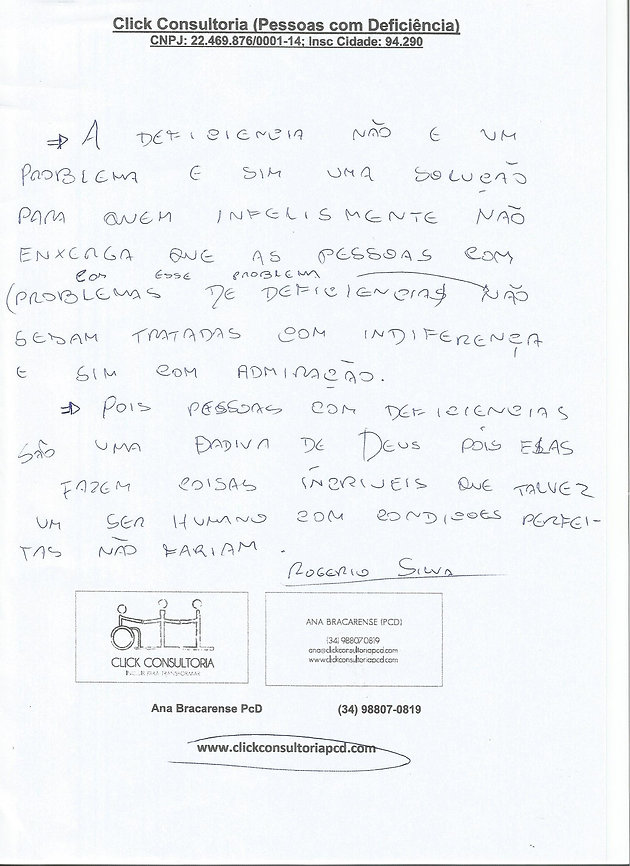 Click Consultoria (Pessoas com Deficiência)
CNPJ: 22.469.876/0001-14; Insc Cidade: 94.290
⇒ A DEFICIENCIA NÃO E UM
PROBLEMA E SIM UMA SOLUÇÃO
PARA QUEM INFELISMENTE NÃO
ENXERGA QUE AS PESSOAS COM
COM ESSE PROBLEMA
(PROBLEMAS DE DEFICIENCIAS) NÃO
SEJAM TRATADAS COM INDIFERENÇA
E SIM COM ADMIRAÇÃO.
⇒ POIS PESSOAS COM DEFICIENCIAS
SÃO UMA DADIVA DE DEUS POIS ELAS
FAZEM COISAS INCRIVEIS QUE TALVEZ
UM SER HUMANO COM CONDICOES PERFEI-
TAS NÃO FARIAM.
ROGERIO SILVA
CLICK CONSULTORIA
INCLUIR PARA TRANSFORMAR
ANA BRACARENSE (PCD)
(34) 98807-0819
ana@clickconsultoriapcd.com
www.clickconsultoriapcd.com
Ana Bracarense PcD (34) 98807-0819
www.clickconsultoriapcd.com